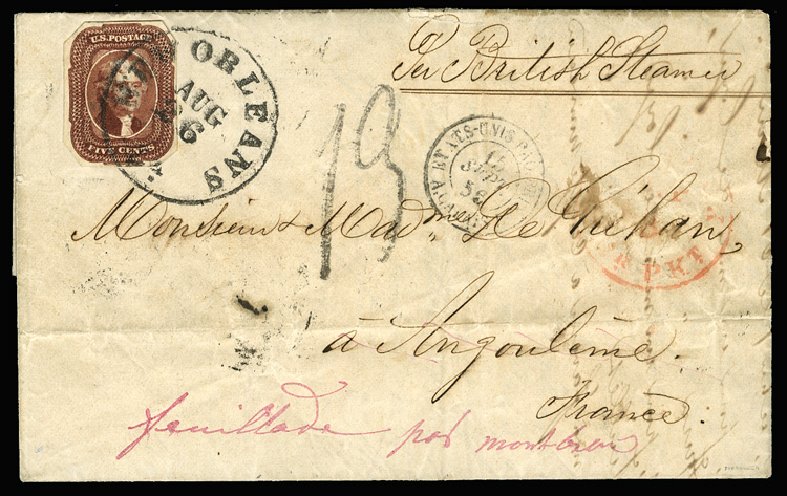 U.S. POSTAGE
FIVE CENTS
ORLEANS
AUG
26
Per British Steamer
13
ETATS-UNIS
15
56
PKT
Monsieur & Madme De
à Angoulême.
France.
feuillade par montbron